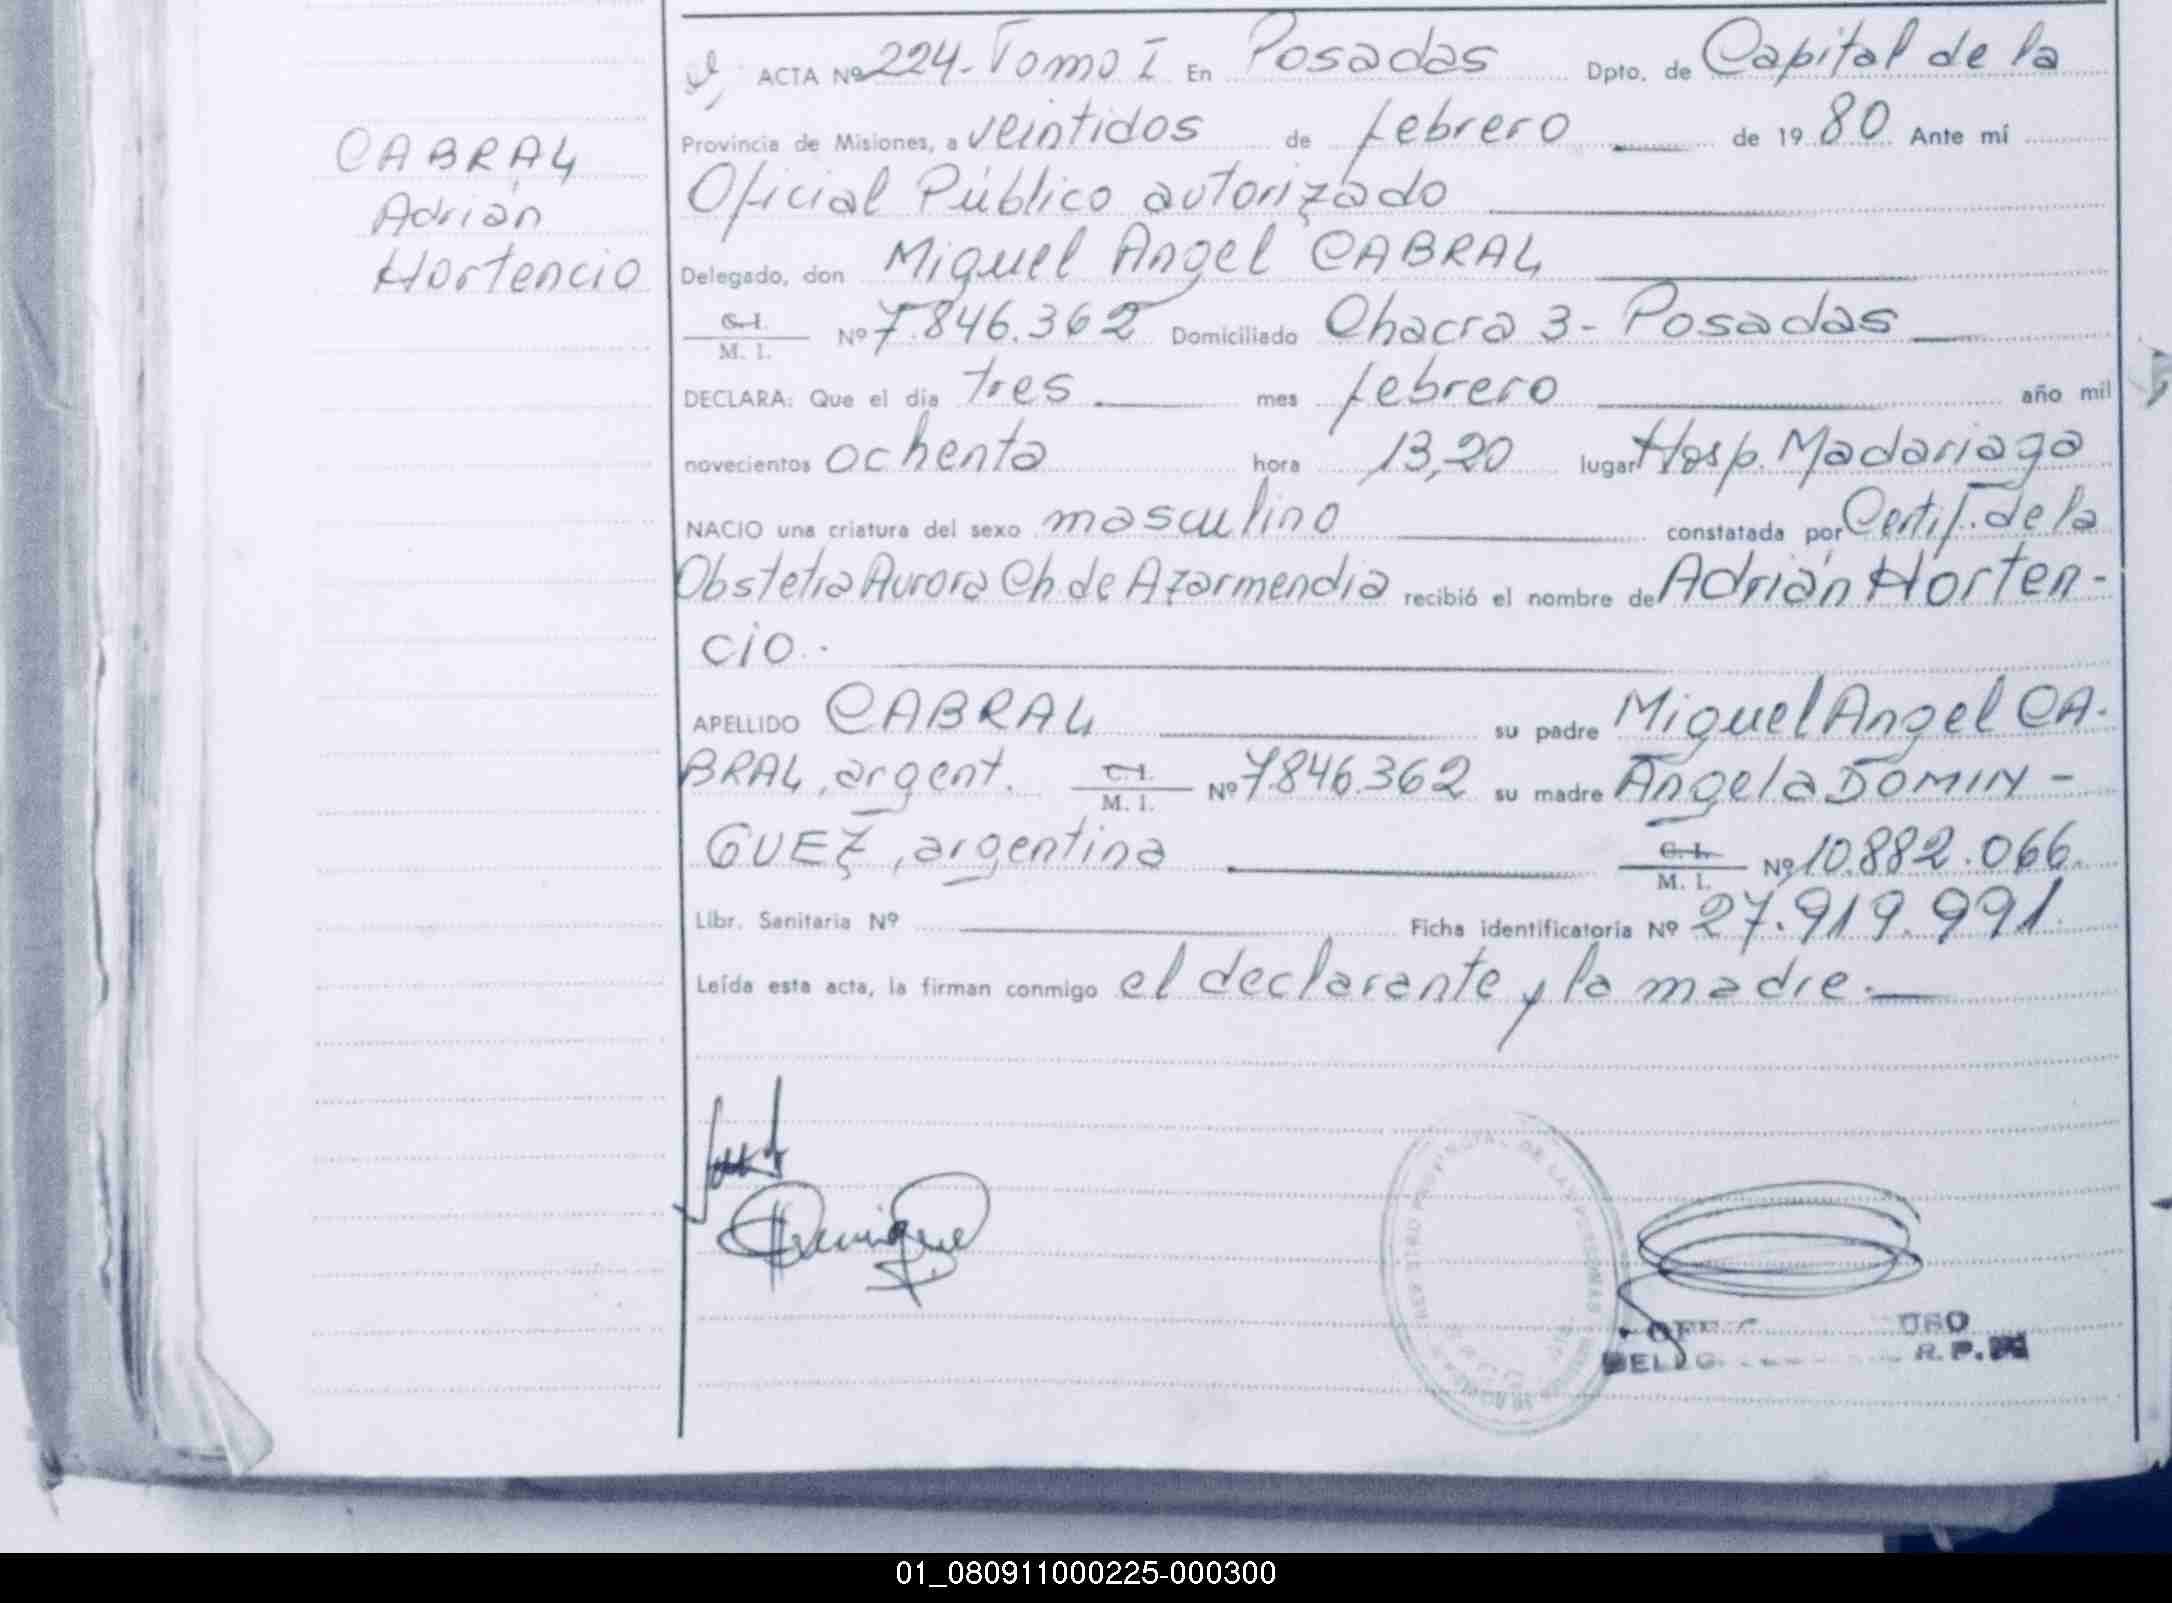 ACTA Nº 224-Tomo I En Posadas Dpto. de Capital de la
Provincia de Misiones, a veintidos de febrero de 1980 Ante mí
Oficial Público autorizado
Delegado, don Miguel Angel CABRAL
C. I.
M. I.
Nº 7.846.362 Domiciliado Chacra 3- Posadas
DECLARA: Que el día tres mes febrero año mil
novecientos ochenta hora 13,20 lugar Hosp. Madariaga
NACIO una criatura del sexo masculino constatada por Certif. de la
Obstetra Aurora Ch. de Azarmendia recibió el nombre de Adrián Horten-
cio.
APELLIDO CABRAL su padre Miguel Angel CA-
BRAL, argent. C. I. M. I. Nº 7.846.362 su madre Angela DOMIN-
GUEZ, argentina C. I. M. I. Nº 10.882.066
Libr. Sanitaria Nº Ficha identificatoria Nº 27.919.991
Leída esta acta, la firman conmigo el declarante y la madre.
CABRAL
Adrián
Hortencio
R. P.
01_080911000225-000300